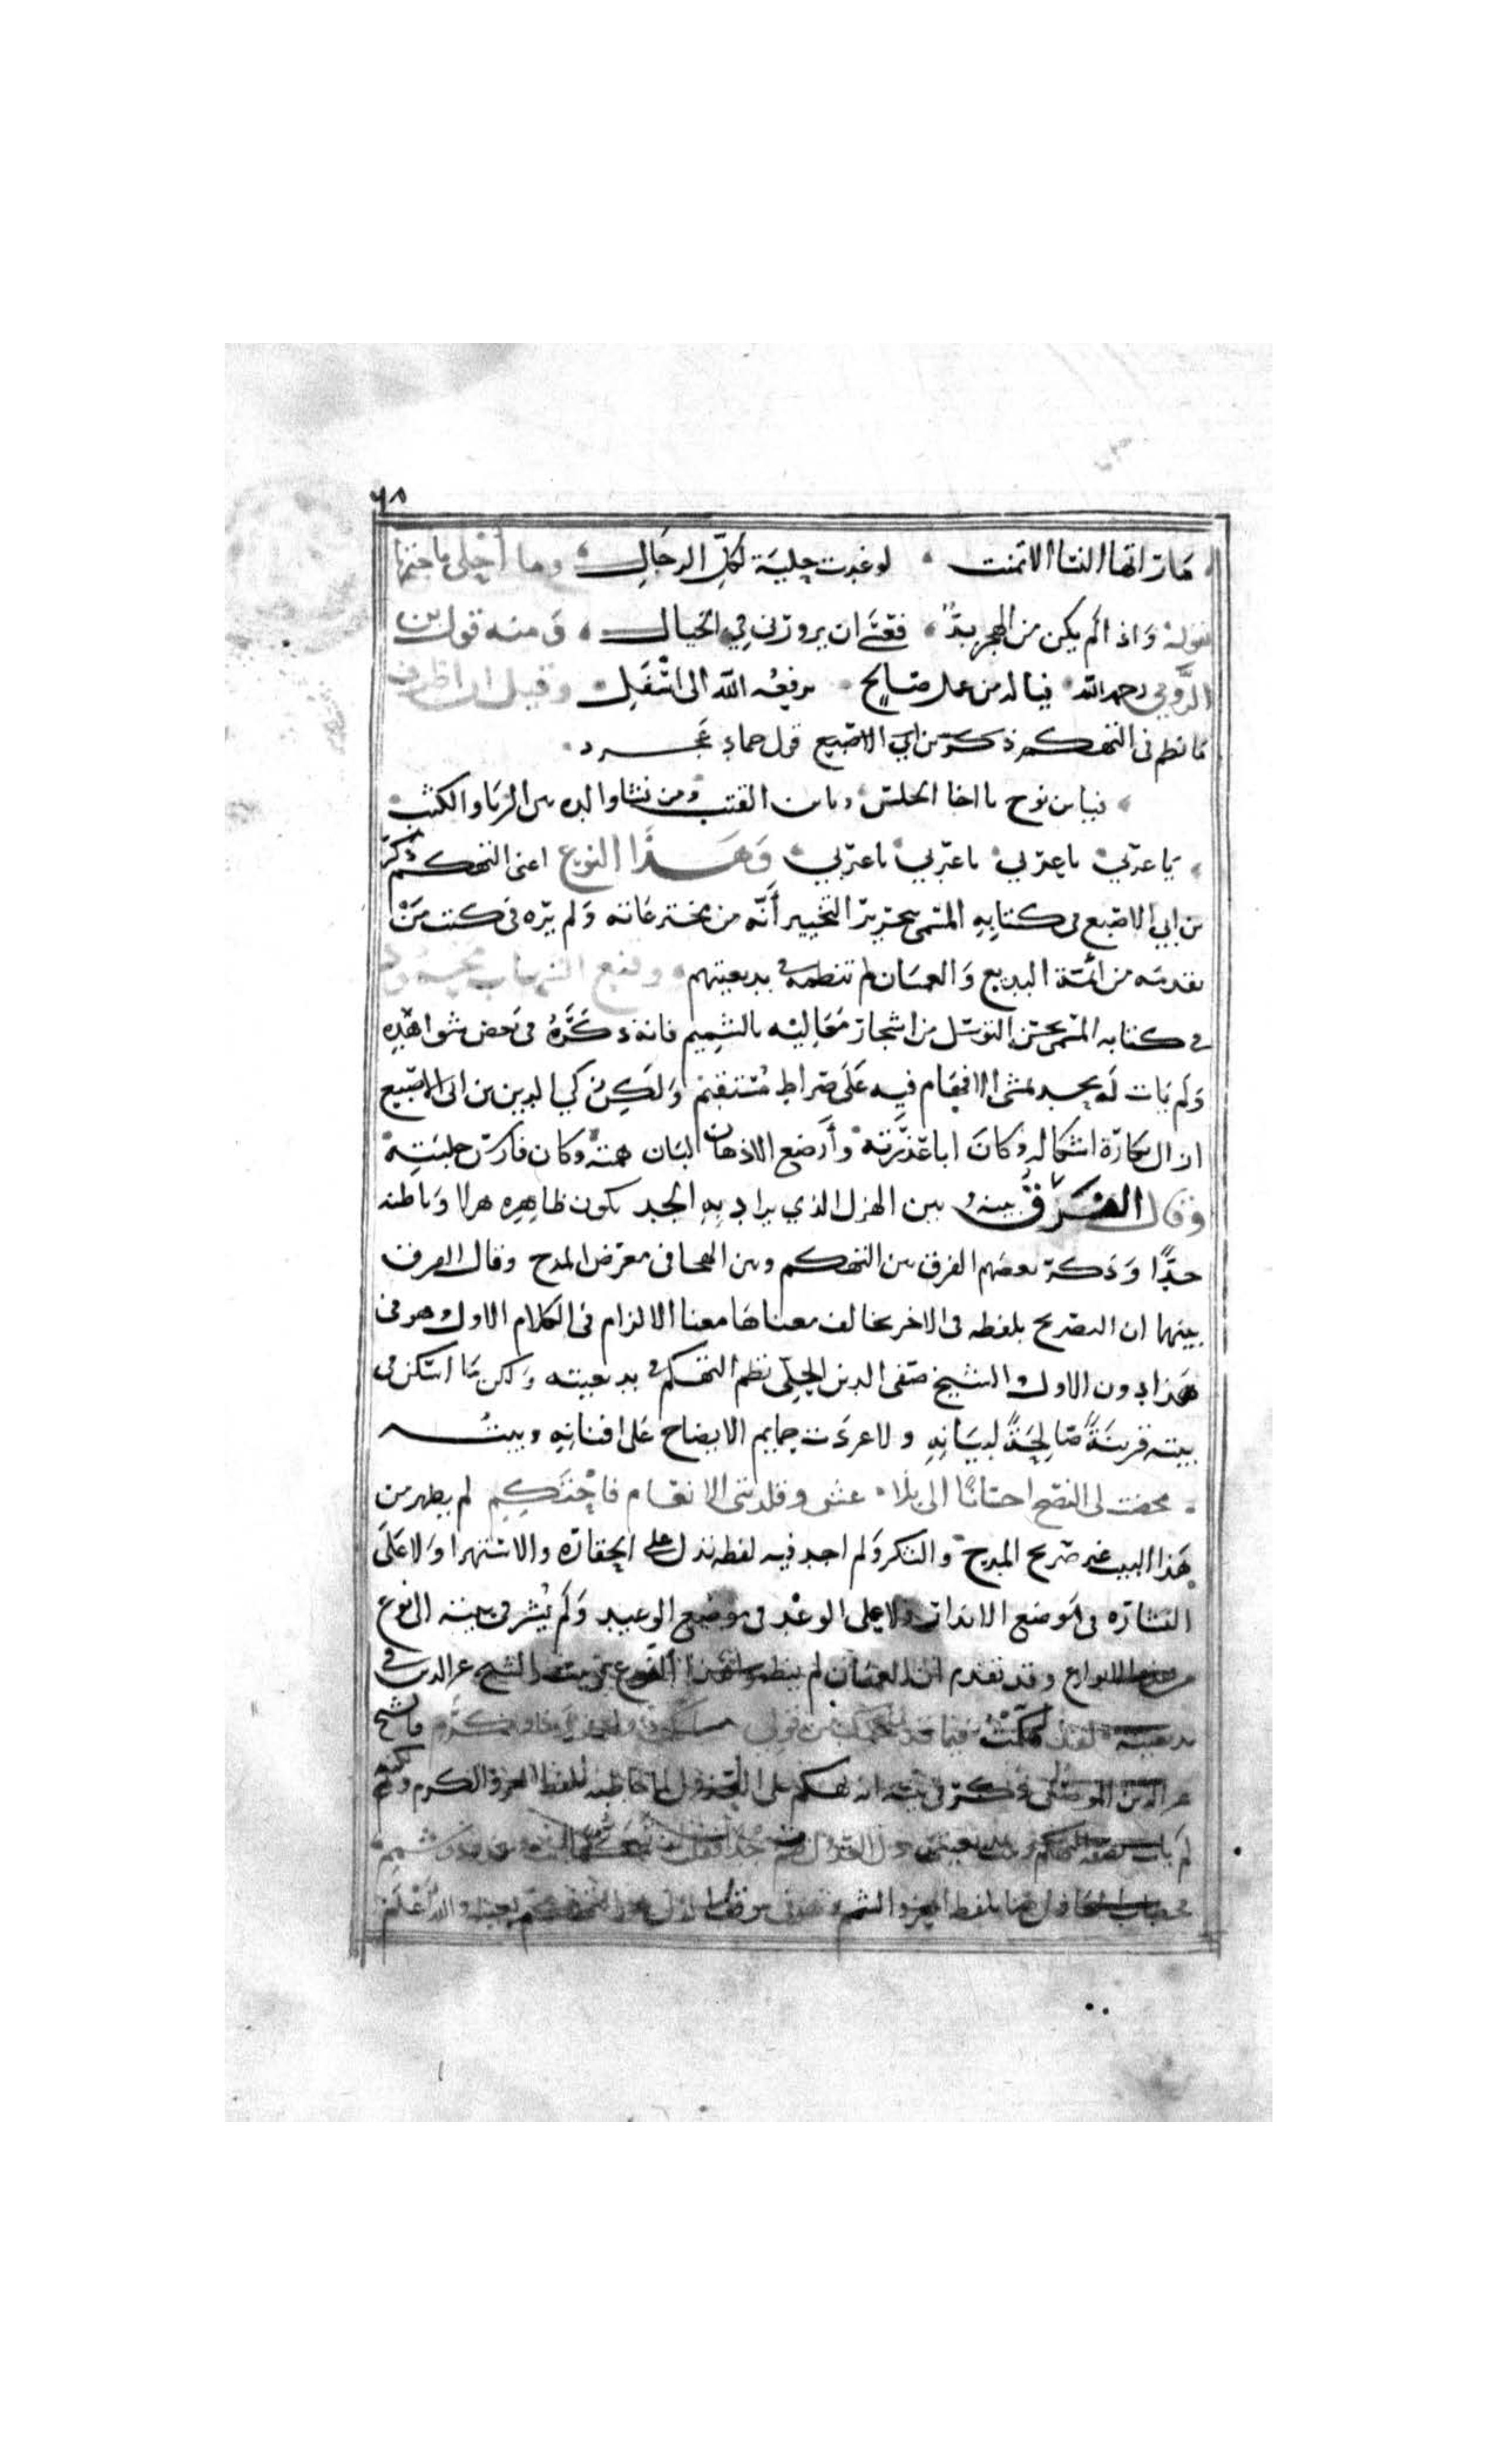 ٦٨
ما راتها النسا الا تمنت ۰ لو غدت حلية لكل الرجال ۰ وما أحلى ما ختمها
بقوله واذا لم يكن من الهجر بدّ ۰ فعسى ان يزورني في الخيال ۰ ومنه قول بن
الرومي رحمه الله ۰ فيا له من عمل صالح ۰ يرفعه الله الى اسفل ۰ وقيل ان اظرف
ما نظم في التهكم ذكره بن ابي الاصبع قول حماد عجرد ۰
۰ فيا بن نوح يا اخا الحلس ويا بن القتب ومن نشا والده بين الربا والكثب
۰ يا عربي يا عربي يا عربي يا عربي ۰ وهذا النوع اعنى التهكم ذكر
بن ابي الاصبع في كتابه المسمى بتحرير التحبير أنّه من مخترعاته ولم يره في كتب من
تقدمه من ائمة البديع والعميان لم تنظمه في بديعيتهم ۰ وقنع الشهاب محمود
في كتابه المسمى بحسن التوسل من اشجار معاليه بالشميم فانه ذكره في بعض شواهده
ولم يات له بحد يمشى الافهام فيه على صراط مستقيم ولكن زكي الدين بن ابى الاصبع
ازال بكارة اشكاله وكان ابا عذرته وأرضع الاذهان لبان همته وكان فارس حلبته
وقال الفرق بينه وبين الهزل الذي يراد به الجد يكون ظاهره هزلا وباطنه
جدًّا وذكر بعضهم الفرق بين التهكم وبين الهجا في معرض المدح وقال الفرق
بينهما ان التصريح بلفظه في الاخر يخالف معناها معنا الالزام في الكلام الاول وهو في
هذا دون الاول والشيخ صفى الدين الحلي نظم التهكم في بديعيته ولكن ما اسكن في
بيته قرينةً صالحةً لبيانه ولا غردت حمايم الايضاح على افنانه وبيته
۰ محضت لى النصح احسانًا الى بلا ۰ غش وقلدتنى الانعام فاحتكم لم يظهر من
هذا البيت غير صريح المدح والشكر ولم اجد فيه لفظه تدل على الحقارة والاستهزا ولا على
البشارة في موضع الانذار ولا على الوعد في موضع الوعيد ولم يشر في بيته الى نوع
من هذه الانواع وقد تقدم ان العميان لم ينظموا هذا النوع في بديعيتهم والشيخ عز الدين في
بديعيته لقد تهكمت فيما قد
عز الدين الموصلى ذكر في بيته انه تهكم على العذول لما خاطبه بلفظ العز والكرم ولكنه
لم يات
بلفظ العز والشمم والله أعلم